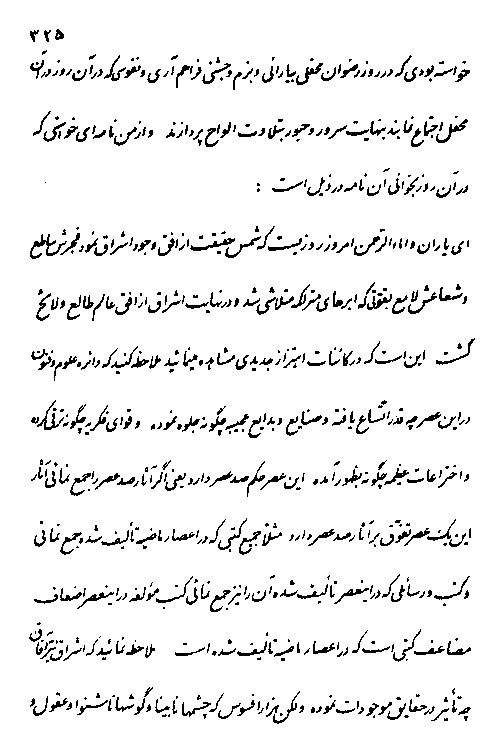 ۳۲۵
خواسته بودی که در روز رضوان محفلی بیارائی و بزم و جشنی فراهم آری و نفوسی که در آن روز در آن
محفل اجتماع نمایند بنهایت سرور و حبور بتلاوت الواح پردازند و از من نامه‌ای خواستی که
در آن روز بخوانی آن نامه در ذیل است :
ای یاران و اماء الرحمن امروز روزیست که شمس حقیقت از افق وجود اشراق نمود فجرش ساطع
و شعاعش لامع بقوتی که ابرهای متراکمه متلاشی شد و در نهایت اشراق از افق عالم طالع و لائح
گشت این است که در کائنات اهتزاز جدیدی مشاهده مینمائید ملاحظه کنید که دائره علوم و فنون
در این عصر چه قدر اتساع یافته و صنایع و بدایع عجیبه چگونه جلوه نموده و قوای فکریه چگونه ترقی کرده
و اختراعات عظیمه چگونه بظهور آمده این عصر حکم صد عصر دارد یعنی اگر آثار صد عصر را جمع نمائی آثار
این یک عصر تفوق بر آثار صد عصر دارد مثلا جمیع کتبی که در اعصار ماضیه تألیف شده جمع نمائی
و کتب و رسائلی که در اینعصر تألیف شده آن را نیز جمع نمائی کتب مؤلفه در اینعصر اضعاف
مضاعف کتبی است که در اعصار ماضیه تألیف شده است ملاحظه نمائید که اشراق نیر آفاق
چه تأثیر در حقایق موجودات نموده ولکن هزار افسوس که چشمها نابینا و گوشها ناشنوا و عقول و